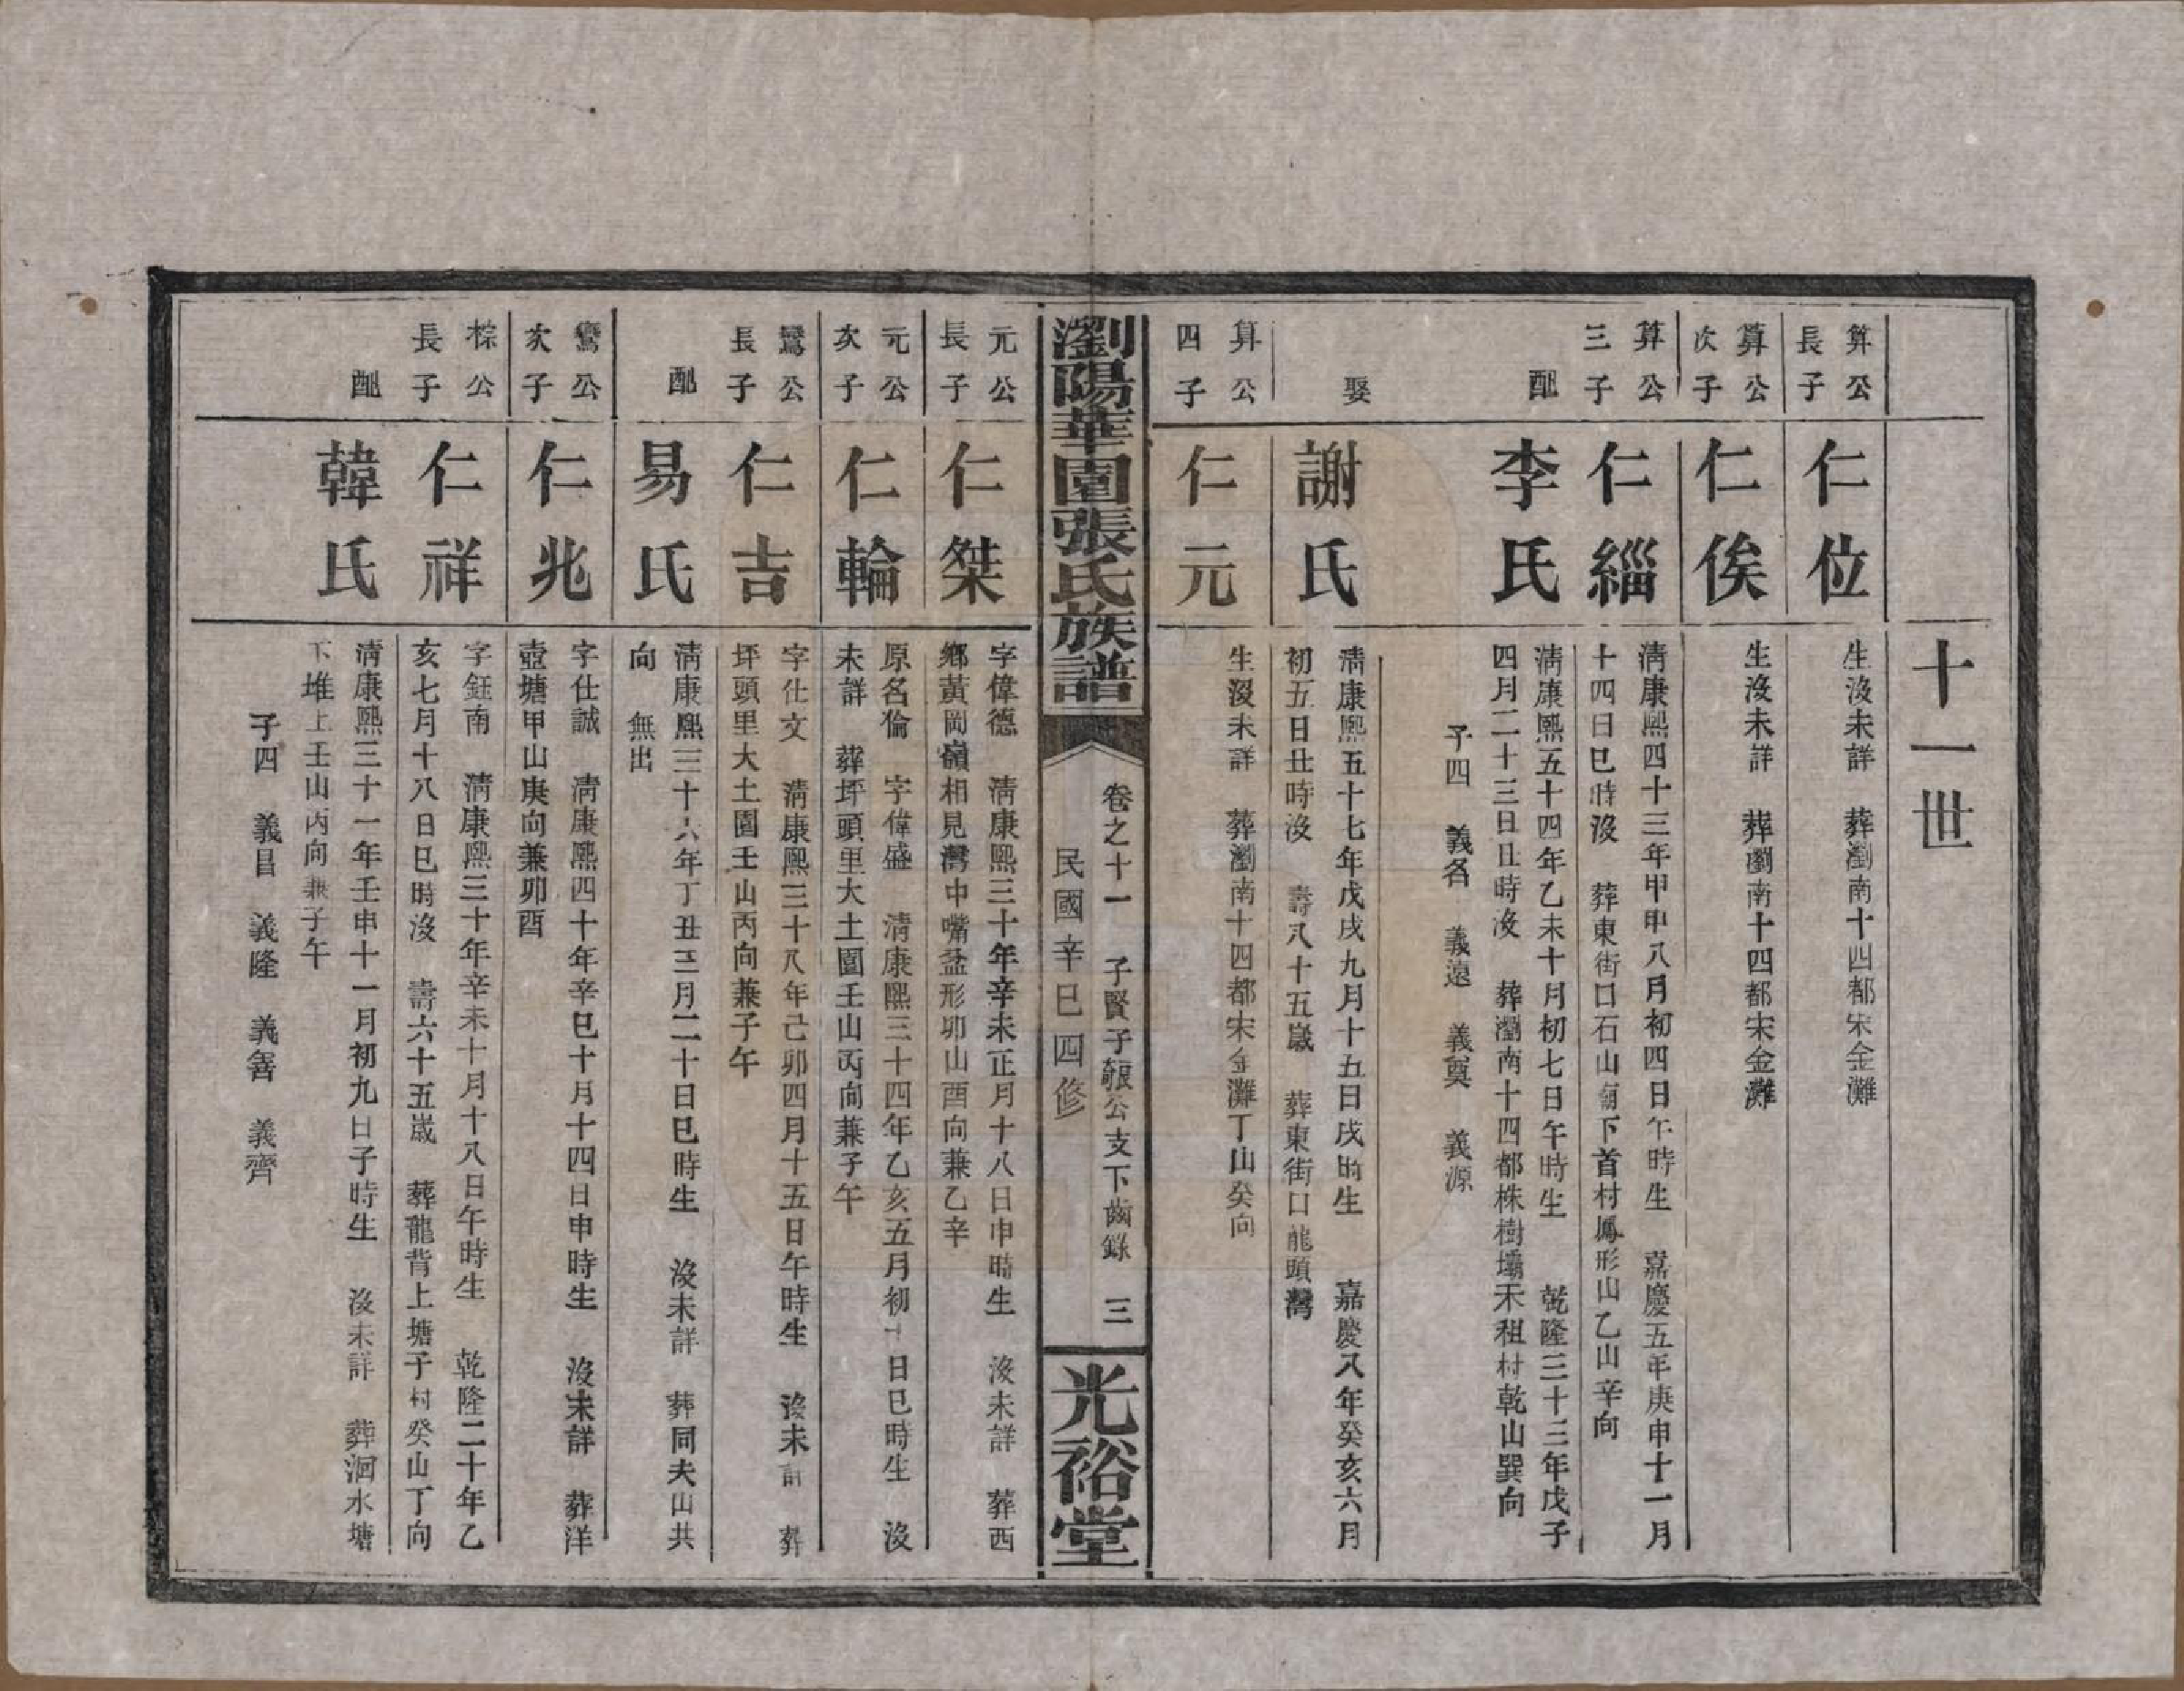 十一世
算公
長子
仁位
生沒未詳　葬瀏南十四都宋金灘
算公
次子
仁俟
生沒未詳　葬瀏南十四都宋金灘
算公
三子
仁緇
清康熙四十三年甲申八月初四日午時生　嘉慶五年庚申十一月
十四日巳時沒　葬東街口石山廟下首村鳳形山乙山辛向
配
李氏
清康熙五十四年乙未十月初七日午時生　乾隆三十三年戊子
四月二十三日丑時沒　葬瀏南十四都株樹壩禾租村乾山巽向
子四　義名　義遠　義奠　義源
娶
謝氏
清康熙五十七年戊戌九月十五日戌時生　嘉慶八年癸亥六月
初五日丑時沒　壽八十五歲　葬東街口龍頭灣
算公
四子
仁元
生沒未詳　葬瀏南十四都宋金灘丁山癸向
瀏陽華園張氏族譜
卷之十一　子賢子報公支下齒錄　三
民國辛巳四修
光裕堂
元公
長子
仁桀
字偉德　清康熙三十年辛未正月十八日申時生　沒未詳　葬西
鄉黃岡嶺相見灣中嘴盆形卯山酉向兼乙辛
元公
次子
仁輪
原名倫　字偉盛　清康熙三十四年乙亥五月初十日巳時生　沒
未詳　葬坪頭里大土園壬山丙向兼子午
鸞公
長子
仁吉
字仕文　清康熙三十八年己卯四月十五日午時生　沒未詳　葬
坪頭里大土園壬山丙向兼子午
配
易氏
清康熙三十六年丁丑三月二十日巳時生　沒未詳　葬同夫山共
向　無出
鸞公
次子
仁兆
字仕誠　清康熙四十年辛巳十月十四日申時生　沒未詳　葬洋
壺塘甲山庚向兼卯酉
棕公
長子
仁祥
字鈺南　清康熙三十年辛未十月十八日午時生　乾隆二十年乙
亥七月十八日巳時沒　壽六十五歲　葬龍背上塘子村癸山丁向
配
韓氏
清康熙三十一年壬申十一月初九日子時生　沒未詳　葬洄水塘
下堆上壬山丙向兼子午
子四　義昌　義隆　義善　義齊